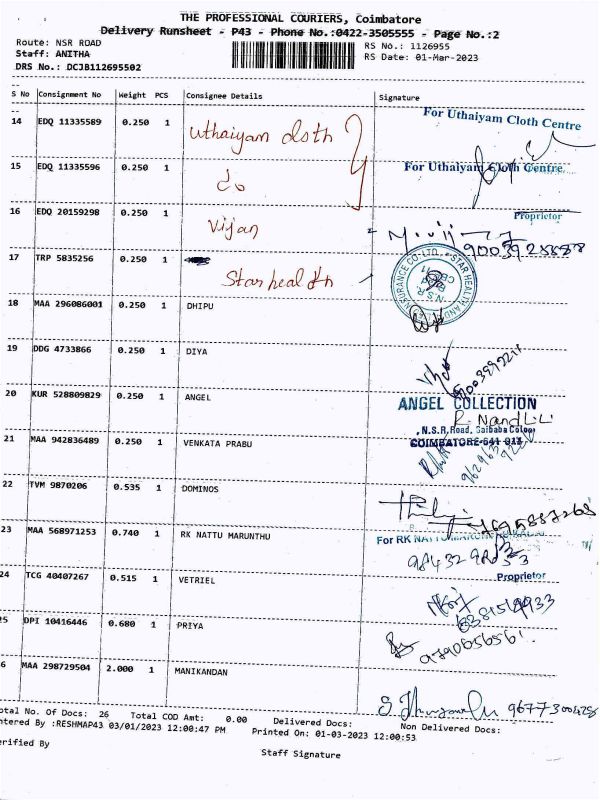 THE PROFESSIONAL COURIERS, Coimbatore
Delivery Runsheet - P43 - Phone No.:0422-3505555 - Page No.:2
Route: NSR ROAD
Staff: ANITHA
DRS No.: DCJB112695502
RS No.: 1126955
RS Date: 01-Mar-2023
S No Consignment No Weight PCS Consignee Details Signature
14 EDQ 11335589 0.250 1 Uthaiyam cloth For Uthaiyam Cloth Centre
15 EDQ 11335596 0.250 1 do For Uthaiyam Cloth Centre
Proprietor
16 EDQ 20159298 0.250 1 Vijan
17 TRP 5835256 0.250 1 Star health
18 MAA 296086001 0.250 1 DHIPU
19 DDG 4733866 0.250 1 DIYA
20 KUR 528809829 0.250 1 ANGEL ANGEL COLLECTION
N.S.R.Road, Saibaba Colony
COIMBATORE-641 011
21 MAA 942836489 0.250 1 VENKATA PRABU
22 TVM 9870206 0.535 1 DOMINOS
23 MAA 568971253 0.740 1 RK NATTU MARUNTHU For RK NATTU
Proprietor
24 TCG 40407267 0.515 1 VETRIEL
25 DPI 10416446 0.680 1 PRIYA
9790656561
6 MAA 298729504 2.000 1 MANIKANDAN
9677300428
otal No. Of Docs: 26 Total COD Amt: 0.00 Delivered Docs: Non Delivered Docs:
ntered By :RESHMAP43 03/01/2023 12:00:47 PM Printed On: 01-03-2023 12:00:53
erified By Staff Signature